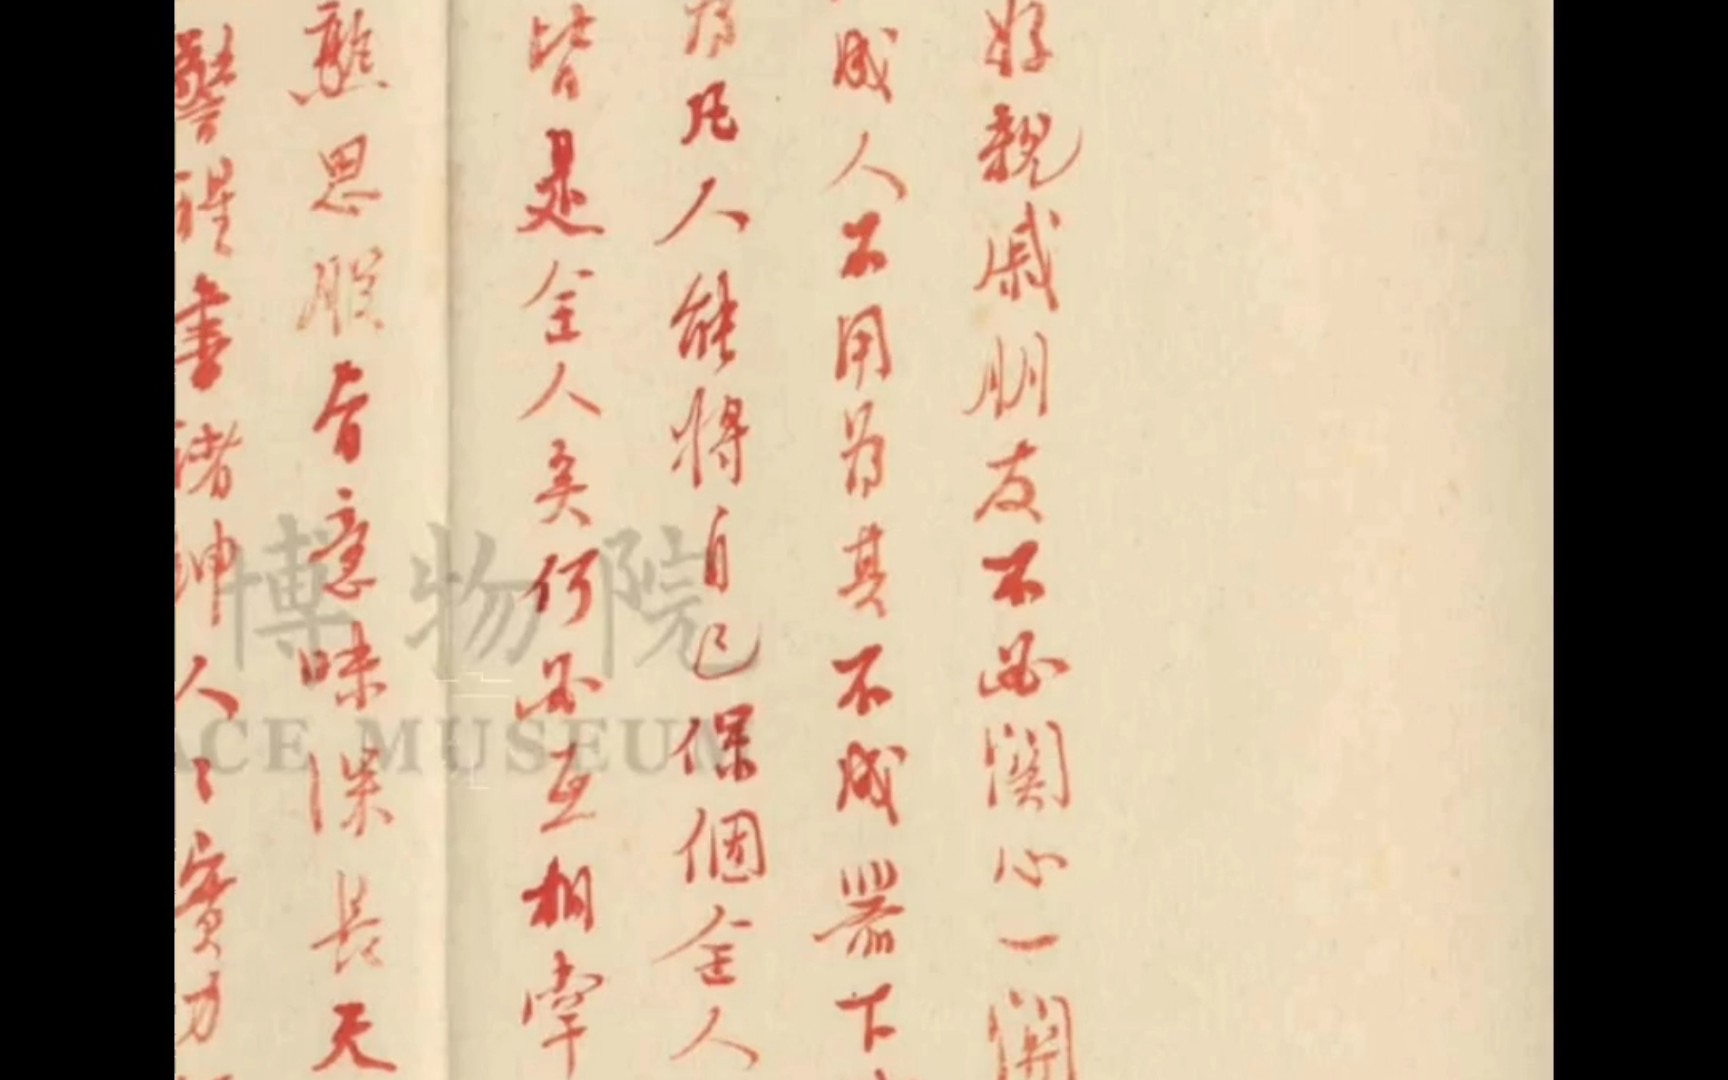 好親戚朋友不必關心一關
成人不用為其不成器下
為凡人能將自己保個全人
皆是全人矣何必互相掌
思服膺意味深長天
警醒書諸紳人人實力
博物院
ACE MUSEUM